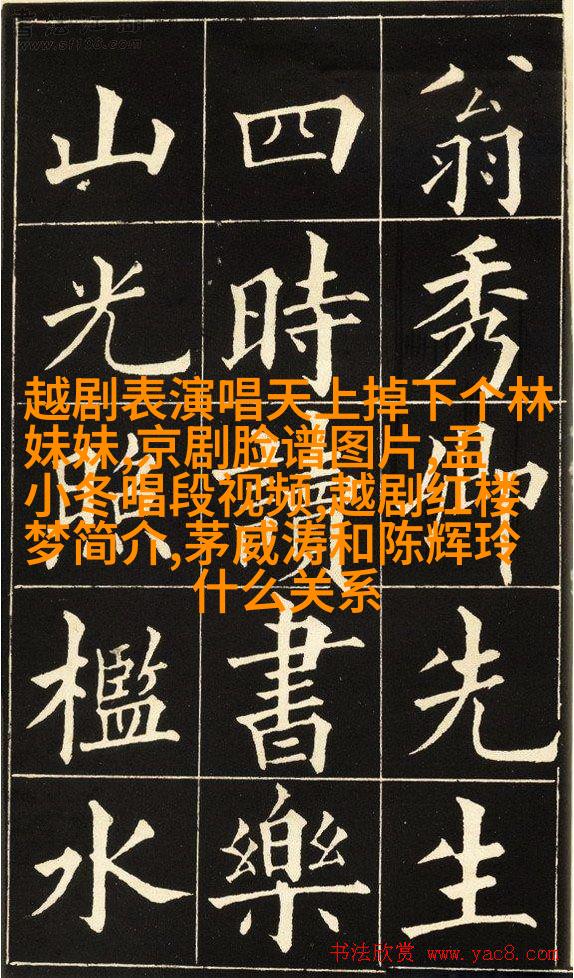 www.sf108.com
翁秀卿先生
四時讀書樂
山光照檻水
越剧表演唱天上掉下个林
妹妹,京剧脸谱图片,孟
小冬唱段视频,越剧红楼
梦简介,茅威涛和陈辉玲
什么关系
书法欣赏 www.yac8.com